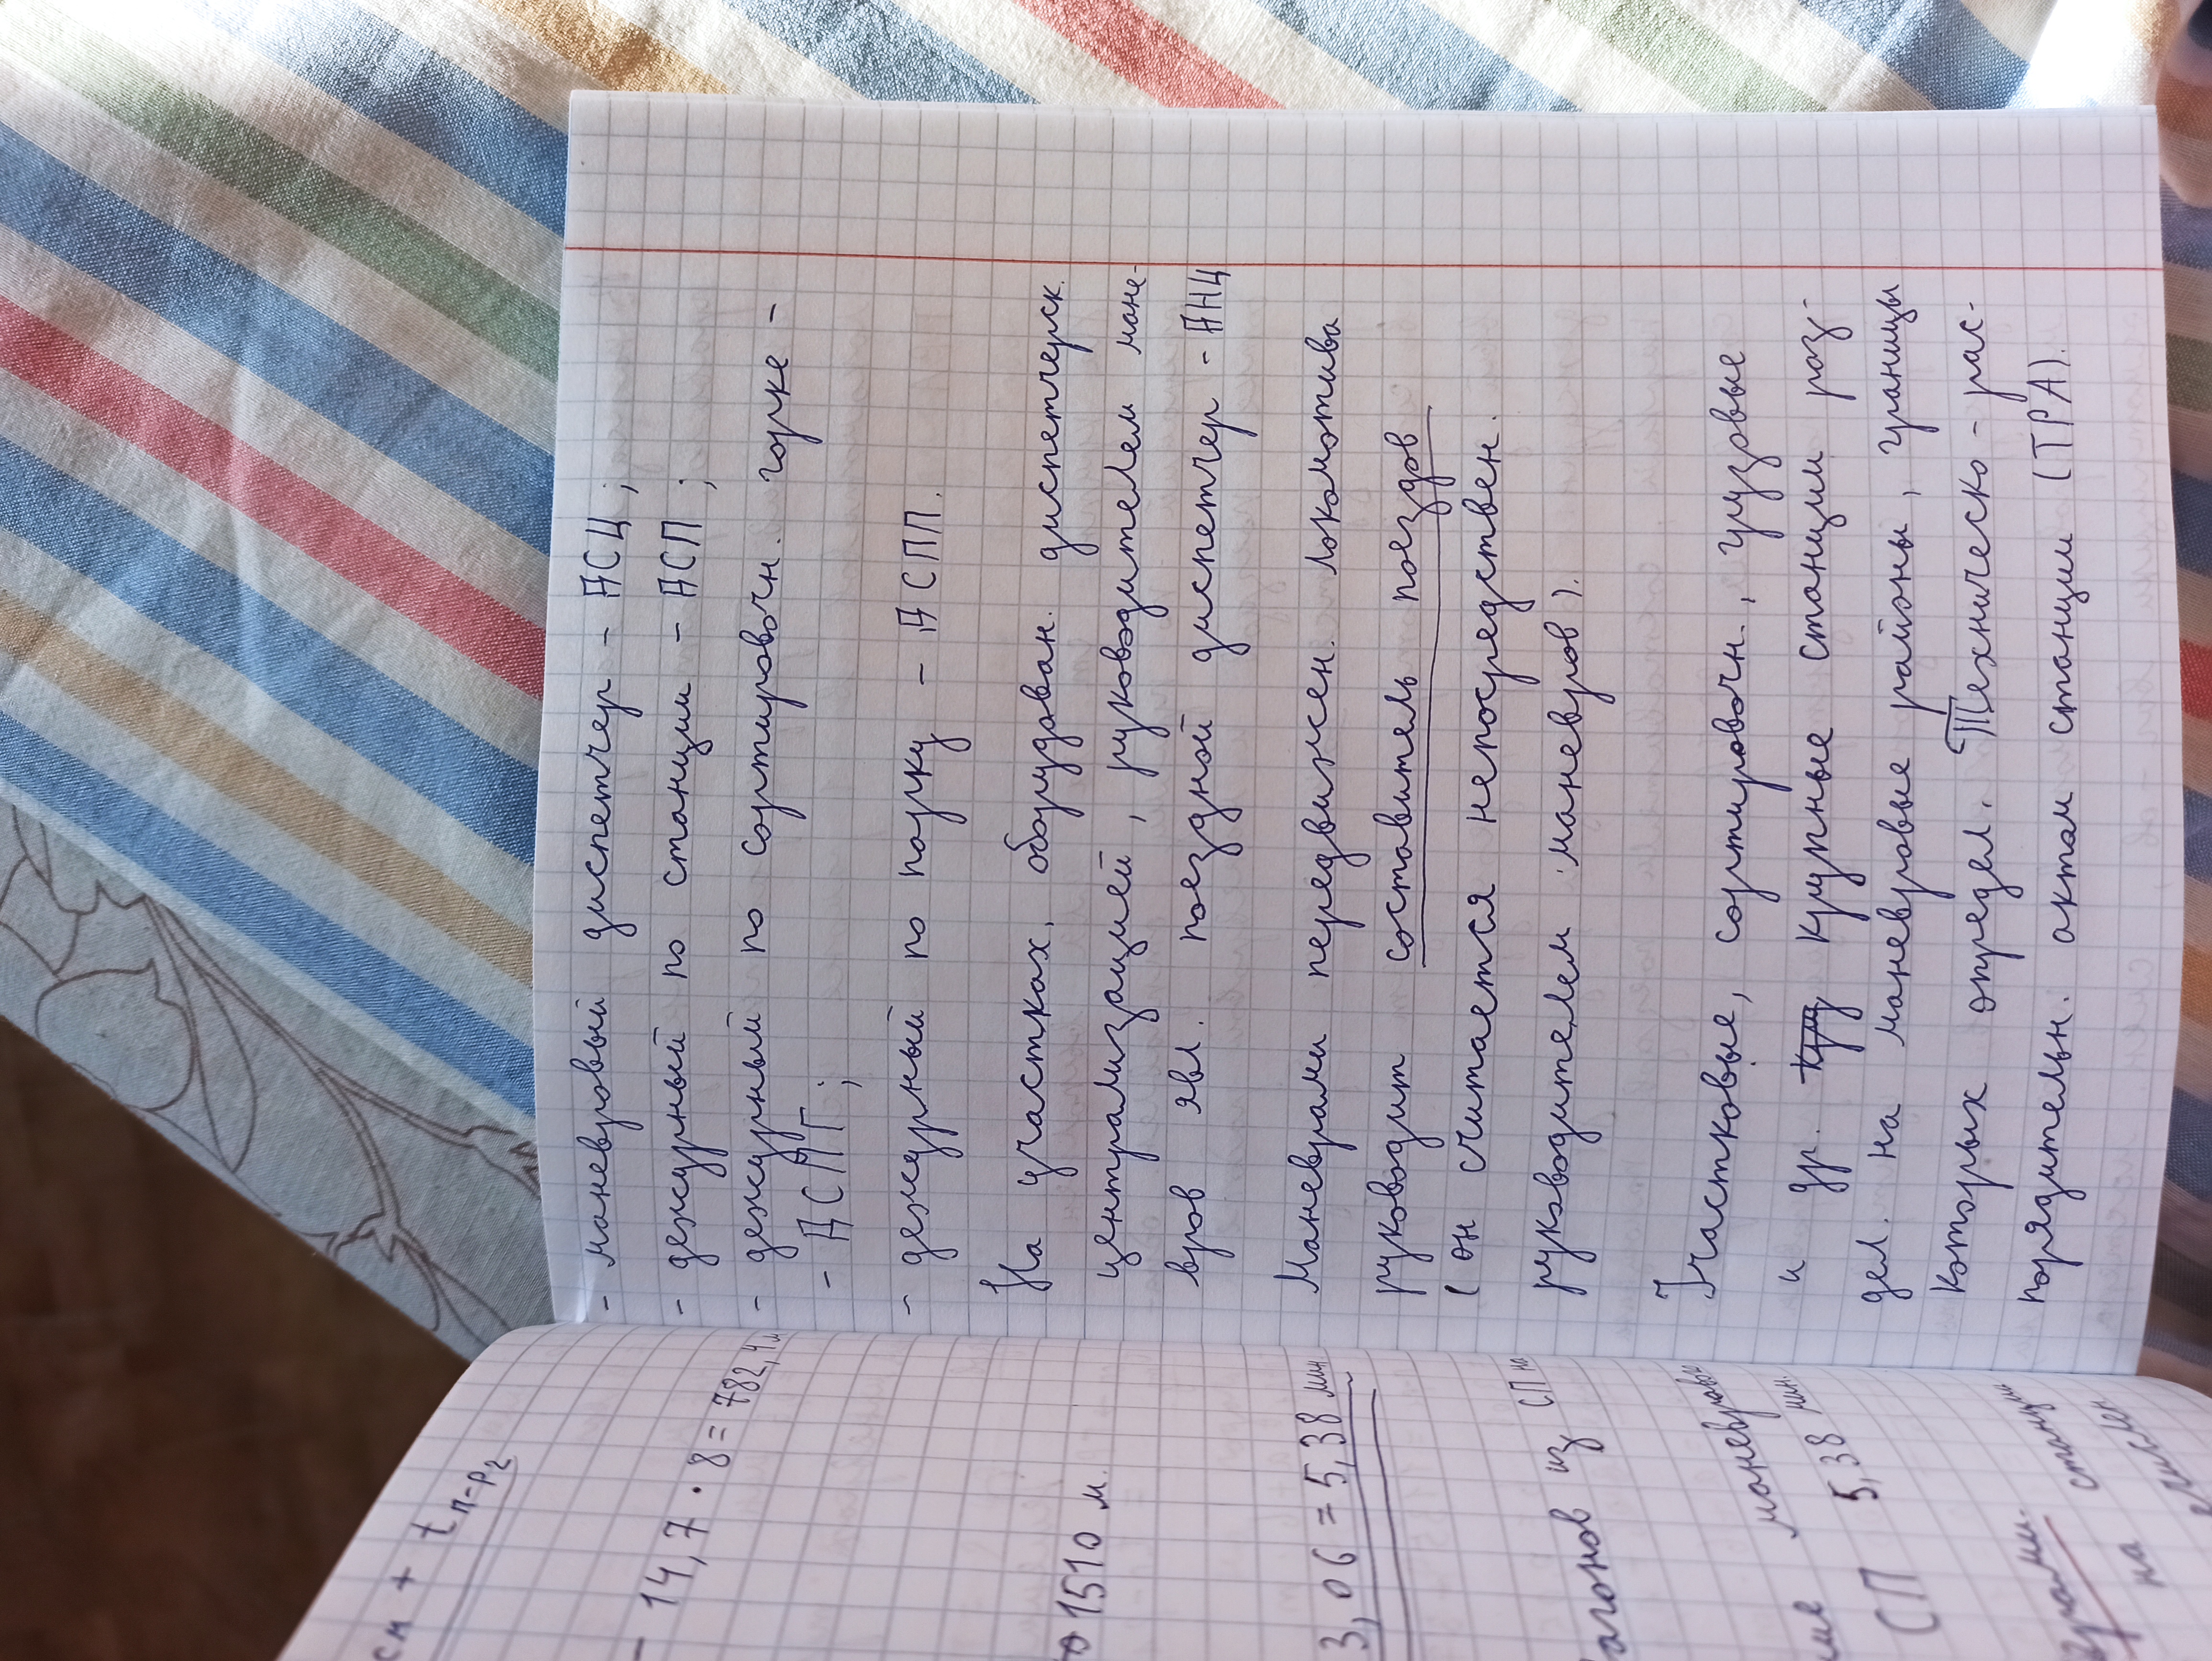 см + tп-р2
- 14,7 · 8 = 782,4 м
1510 м.
3,06 = 5,38 мин.
агонов из СП на
маневровые
СП 5,38 мин.
станции
на
- маневровый диспетчер - ДСЦ;
- дежурный по станции - ДСП;
- дежурный по сортировочн. горке -
- ДСПГ;
- дежурный по парку - ДСПП.
На участках, оборудован. диспетчерск.
централизацией, руководителем мане-
вров явл. поездной диспетчер - ДНЦ
Маневрами передвижен. локомотива
руководит составитель поездов
(он считается непосредствен.
руководителем маневров).
Участковые, сортировочн., грузовые
и др. крупные станции раз-
дел. на маневровые районы, границы
которых опредéл. Техническо-рас-
порядительн. актом станции (ТРА).